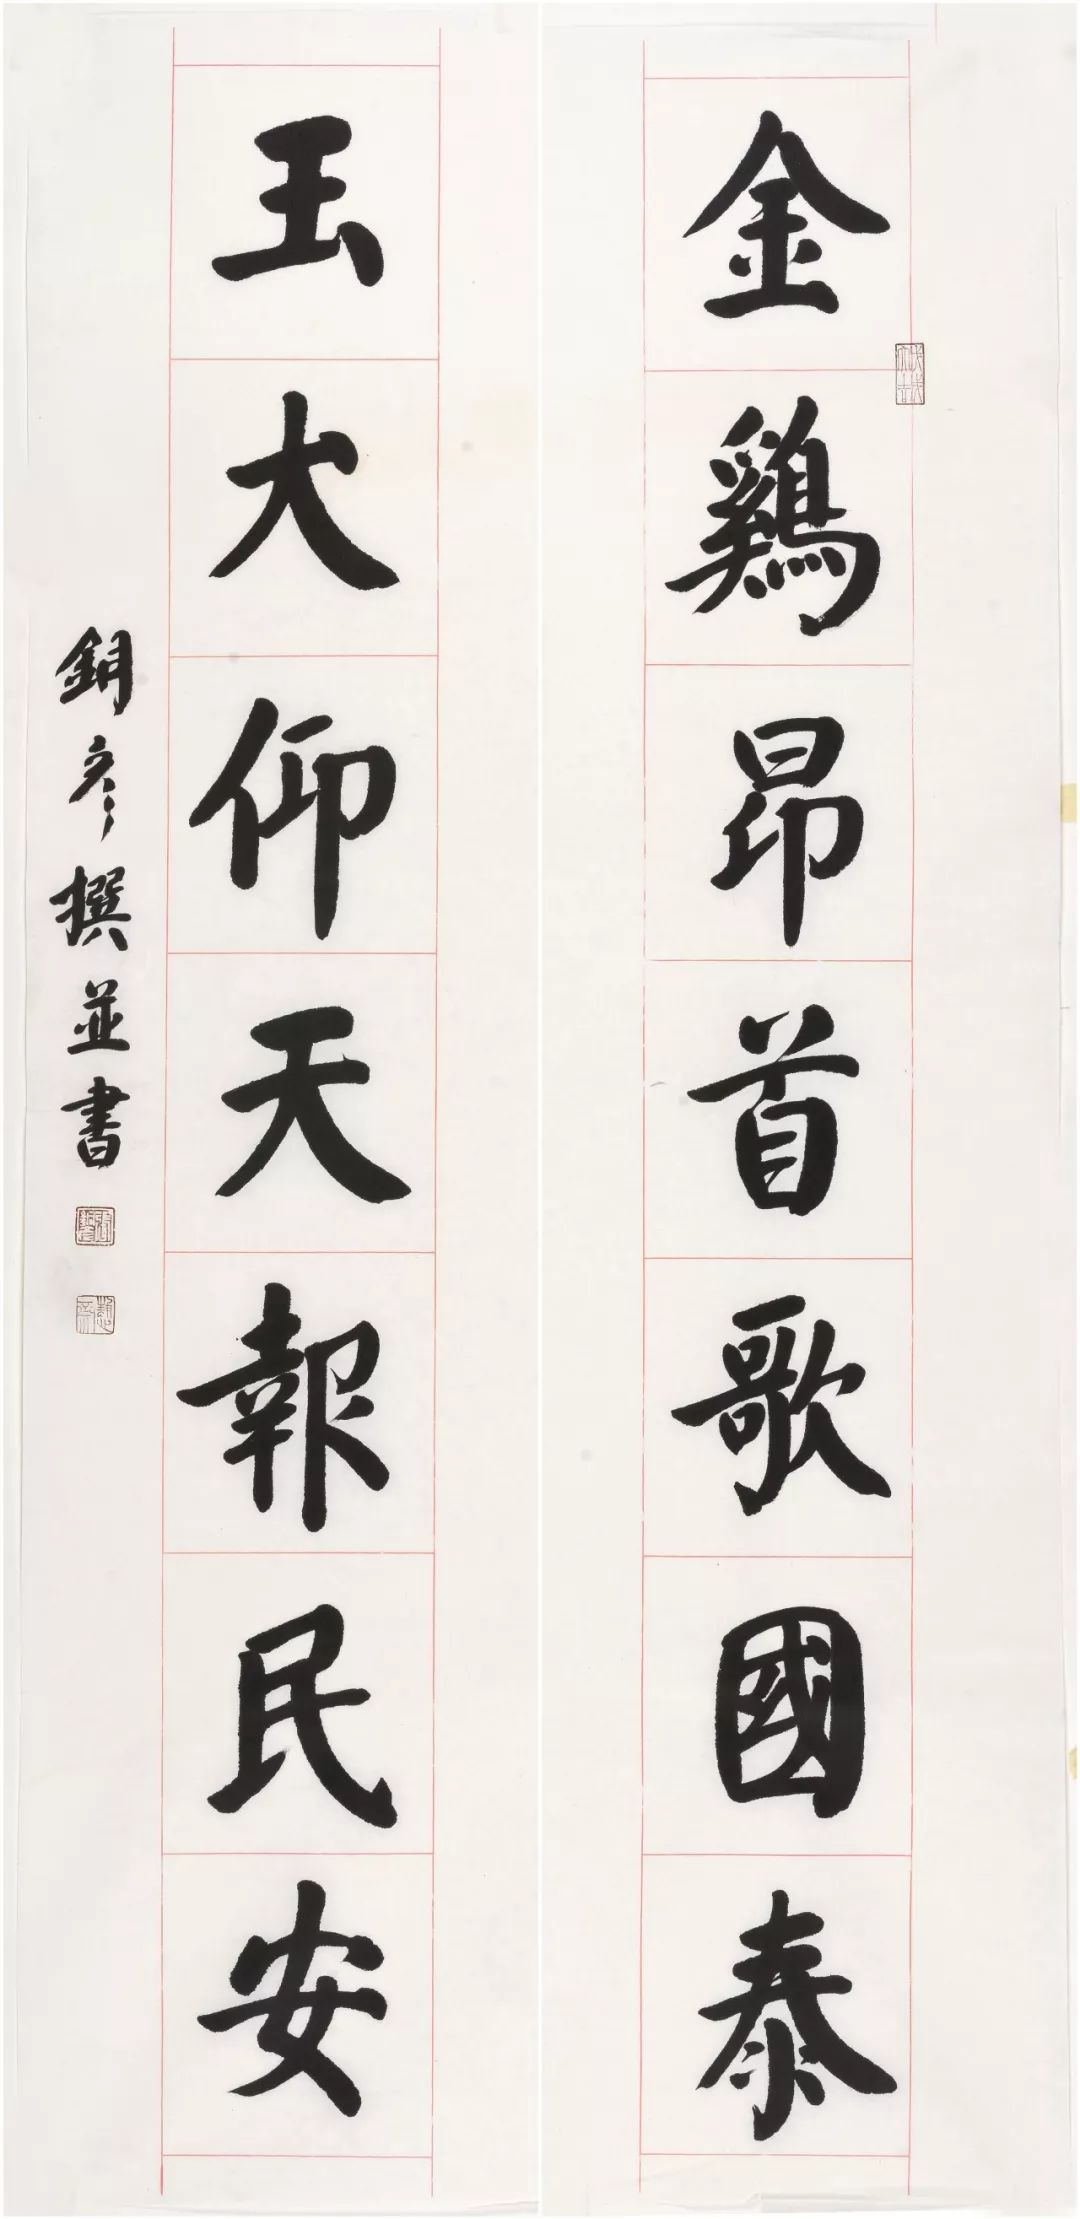 金鷄昂首歌國泰
玉犬仰天報民安
銅彥撰並書